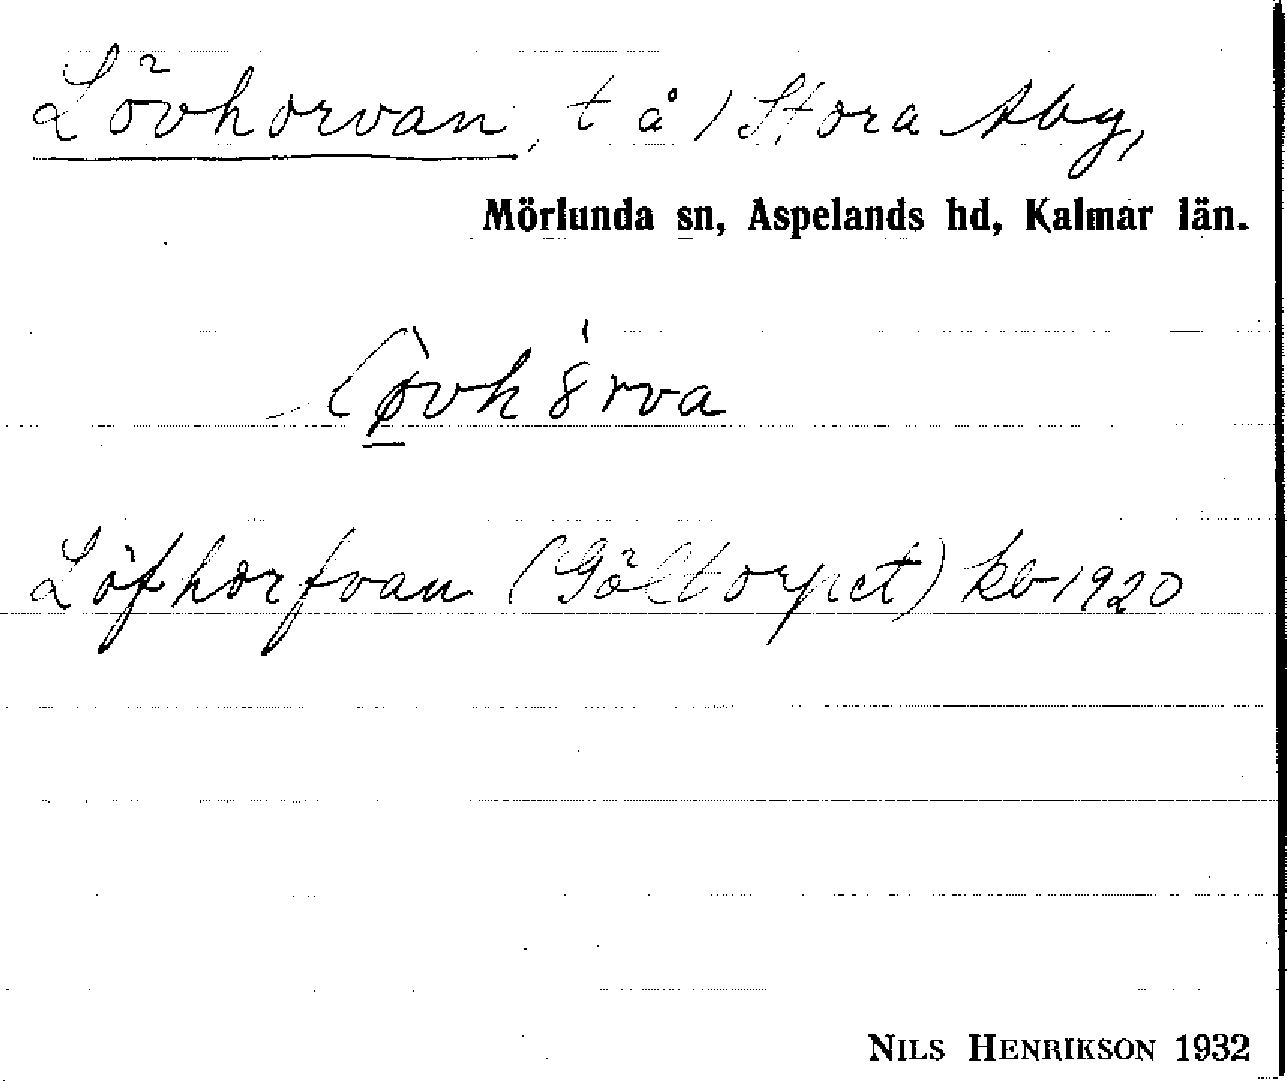 Lövhorvan, t å 1 Stora Aby,
Mörlunda sn, Aspelands hd, Kalmar län.
Löfhorfvan (Göltorpet) kb 1920
NILS HENRIKSON 1932